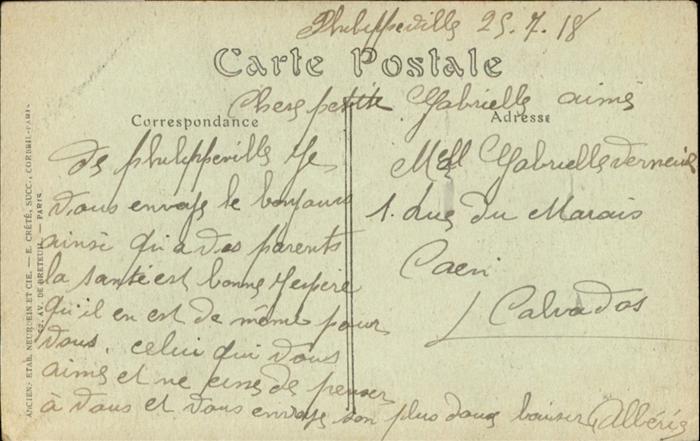 Philippeville 25.7.18
Carte Postale
Chere petite Gabrielle aimé
Correspondance
Adresse
de philippeville Je
vous envoye le bonjours
ainsi qu'a vos parents
la santé est bonne Jespère
qu'il en est de même pour
vous. celui qui vous
aime et ne cesse de penser
à vous et vous envoye son plus doux baiser Albéric
Mell Gabrielle Verneuil
1. Rue du Marais
Caen
Calvados
ANCIENS ETAB. NEURDEIN ET CIE. — E. CRÉTÉ, SUCC., CORBEIL-PARIS
52, AV. DE BRETEUIL — PARIS